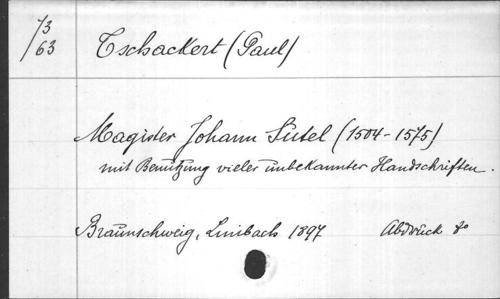 73/63
Tschackert (Paul)
Magister Johann Sutel (1504-1575)
mit Benutzung vieler unbekannter Handschriften.
Braunschweig, Limbach 1897 Abdruck 8o